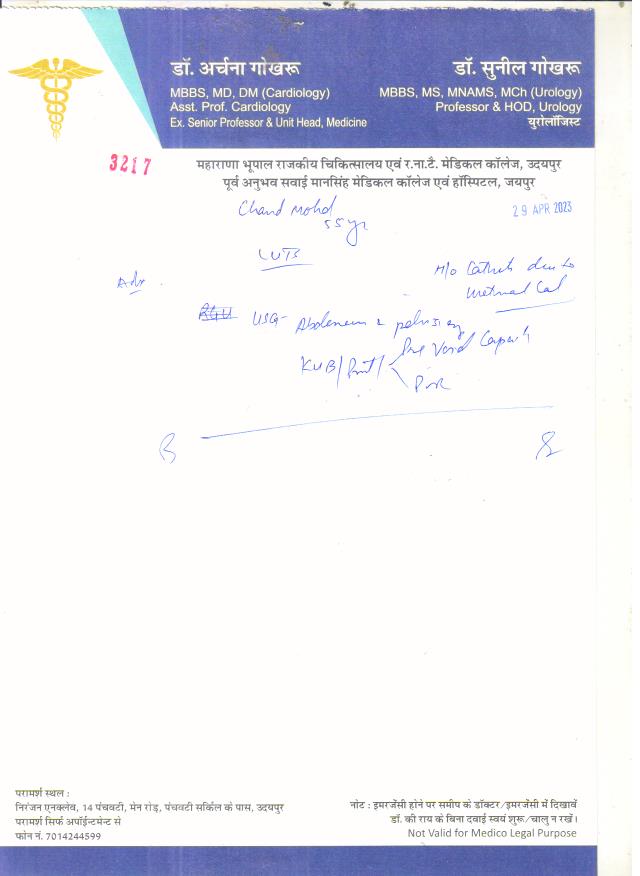 डॉ. अर्चना गोखरू
MBBS, MD, DM (Cardiology)
Asst. Prof. Cardiology
Ex. Senior Professor & Unit Head, Medicine
डॉ. सुनील गोखरू
MBBS, MS, MNAMS, MCh (Urology)
Professor & HOD, Urology
युरोलॉजिस्ट
3217
महाराणा भूपाल राजकीय चिकित्सालय एवं र.ना.टै. मेडिकल कॉलेज, उदयपुर
पूर्व अनुभव सवाई मानसिंह मेडिकल कॉलेज एवं हॉस्पिटल, जयपुर
Chand Mohd
55 yr
29 APR 2023
LUTS
H/o due to
Adv
USG- Abdomen & pelvis
Pre Void
KUB/Prost/
PVR
परामर्श स्थल :
निरंजन एनक्लेव, 14 पंचवटी, मेन रोड़, पंचवटी सर्किल के पास, उदयपुर
परामर्श सिर्फ अपॉईन्टमेन्ट से
फोन नं. 7014244599
नोट : इमरजेंसी होने पर समीप के डॉक्टर/इमरजेंसी में दिखावें
डॉ. की राय के बिना दवाई स्वयं शुरू/चालु न रखें।
Not Valid for Medico Legal Purpose